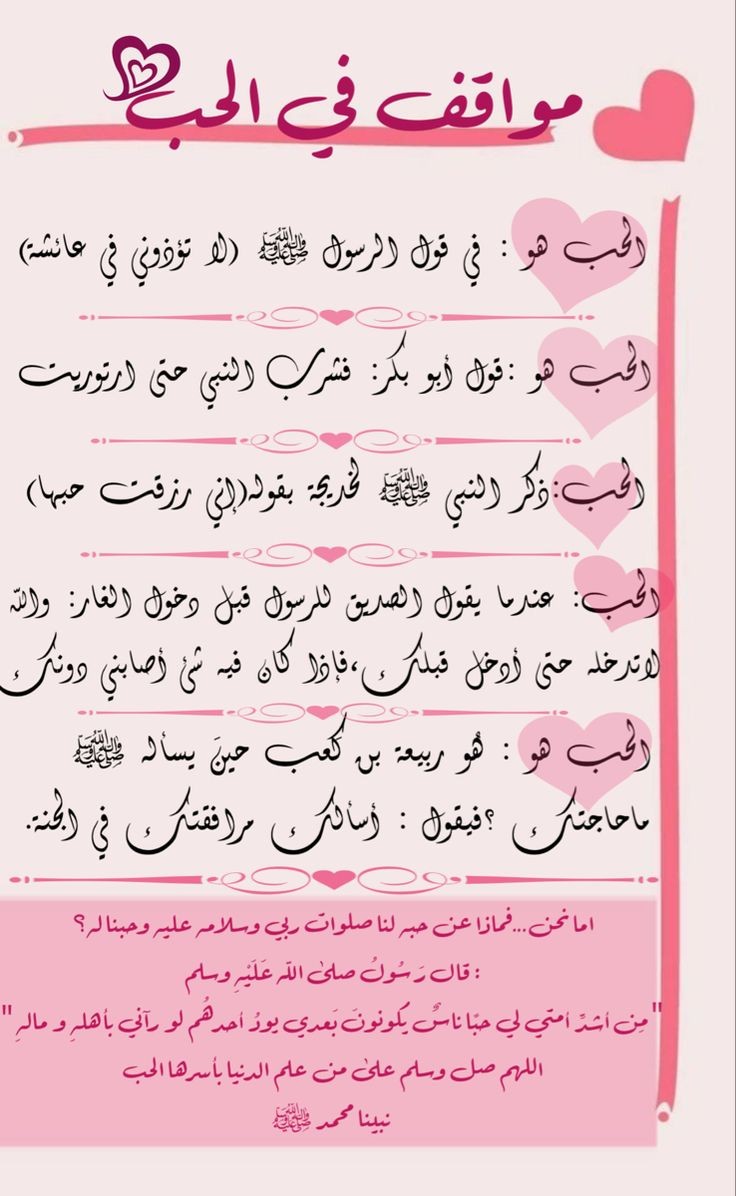 مواقف في الحب
الحب هو : في قول الرسول ﷺ (لا تؤذوني في عائشة)
الحب هو :قول أبو بكر: فشرب النبي حتى ارتوريت
الحب:ذكر النبي ﷺ لخديجة بقوله(إني رزقت حبها)
الحب: عندما يقول الصديق للرسول قبل دخول الغار: والله
لاتدخله حتى أدخل قبلك،فإذا كان فيه شئ أصابني دونك
الحب هو : هُو ربيعة بن كعب حينَ يسأله ﷺ
ماحاجتك ؟فيقول : أسألك مرافقتك في الجنة.
اما نحن...فماذا عن حبه لنا صلوات ربي وسلامه عليه وحبنا له؟
: قال رَسُولُ صلىٰ الله عَلَيْهِ وسلم
"مِن أشدِّ أمتي لي حبًا ناسٌ يكونونَ بَعدي يودُ أحدهُم لو رآني بأهلهِ و مالهِ"
اللهم صل وسلم علىٰ من علم الدنيا بأسرها الحب
نبينا محمد ﷺ